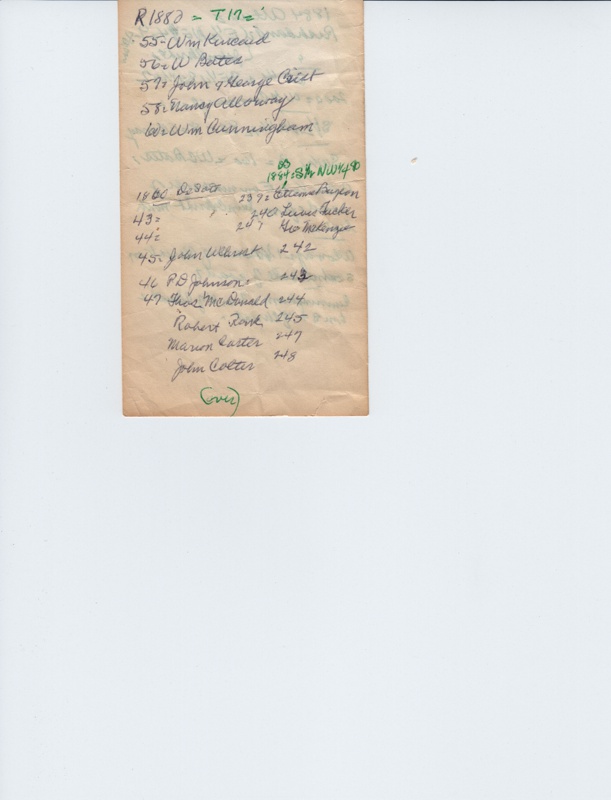 R 1882 = T17=
55- Wm Kincaid
56= W Bates
57= John & George Crist
58= Nancy Alloway
60= Wm Cunningham
1884 S½ NW¼ 90
1860 DeSoto 239= Etienne
43= 240 Lewis Tucker
44= 247 Geo McKenzie
45= John 242
46 P D Johnson= 243
47 Thos. McDonald 244
Robert 245
Marion Carter 247
John Colter 248
(over)